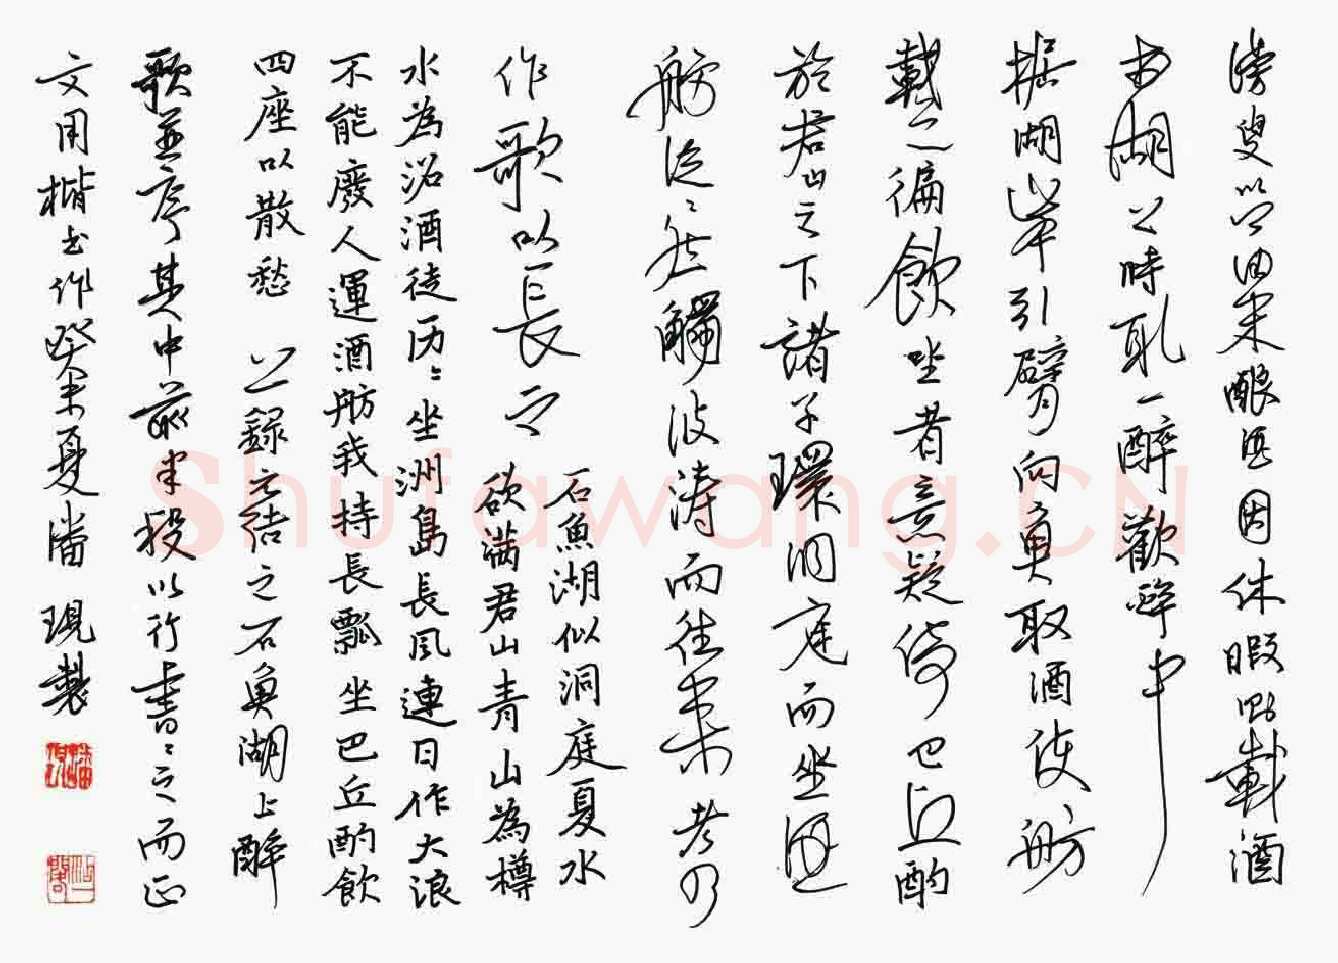 漫叟以公田米釀酒因休暇則載酒
於湖上時取一醉歡醉中
據湖岸引臂向魚取酒使舫
載之徧飲坐者意疑倚巴丘酌
於君山之下諸子環洞庭而坐酒
舫泛々然觸波濤而往來者乃
作歌以長之
石魚湖似洞庭夏水
欲滿君山青山為樽
水為沼酒徒历々坐洲島長風連日作大浪
不能廢人運酒舫我持長瓢坐巴丘酌飲
四座以散愁 上錄元結之石魚湖上醉
歌並序其中前半段以行書々之而正
文用楷书作癸未夏 潘現製
Shufawang.CN